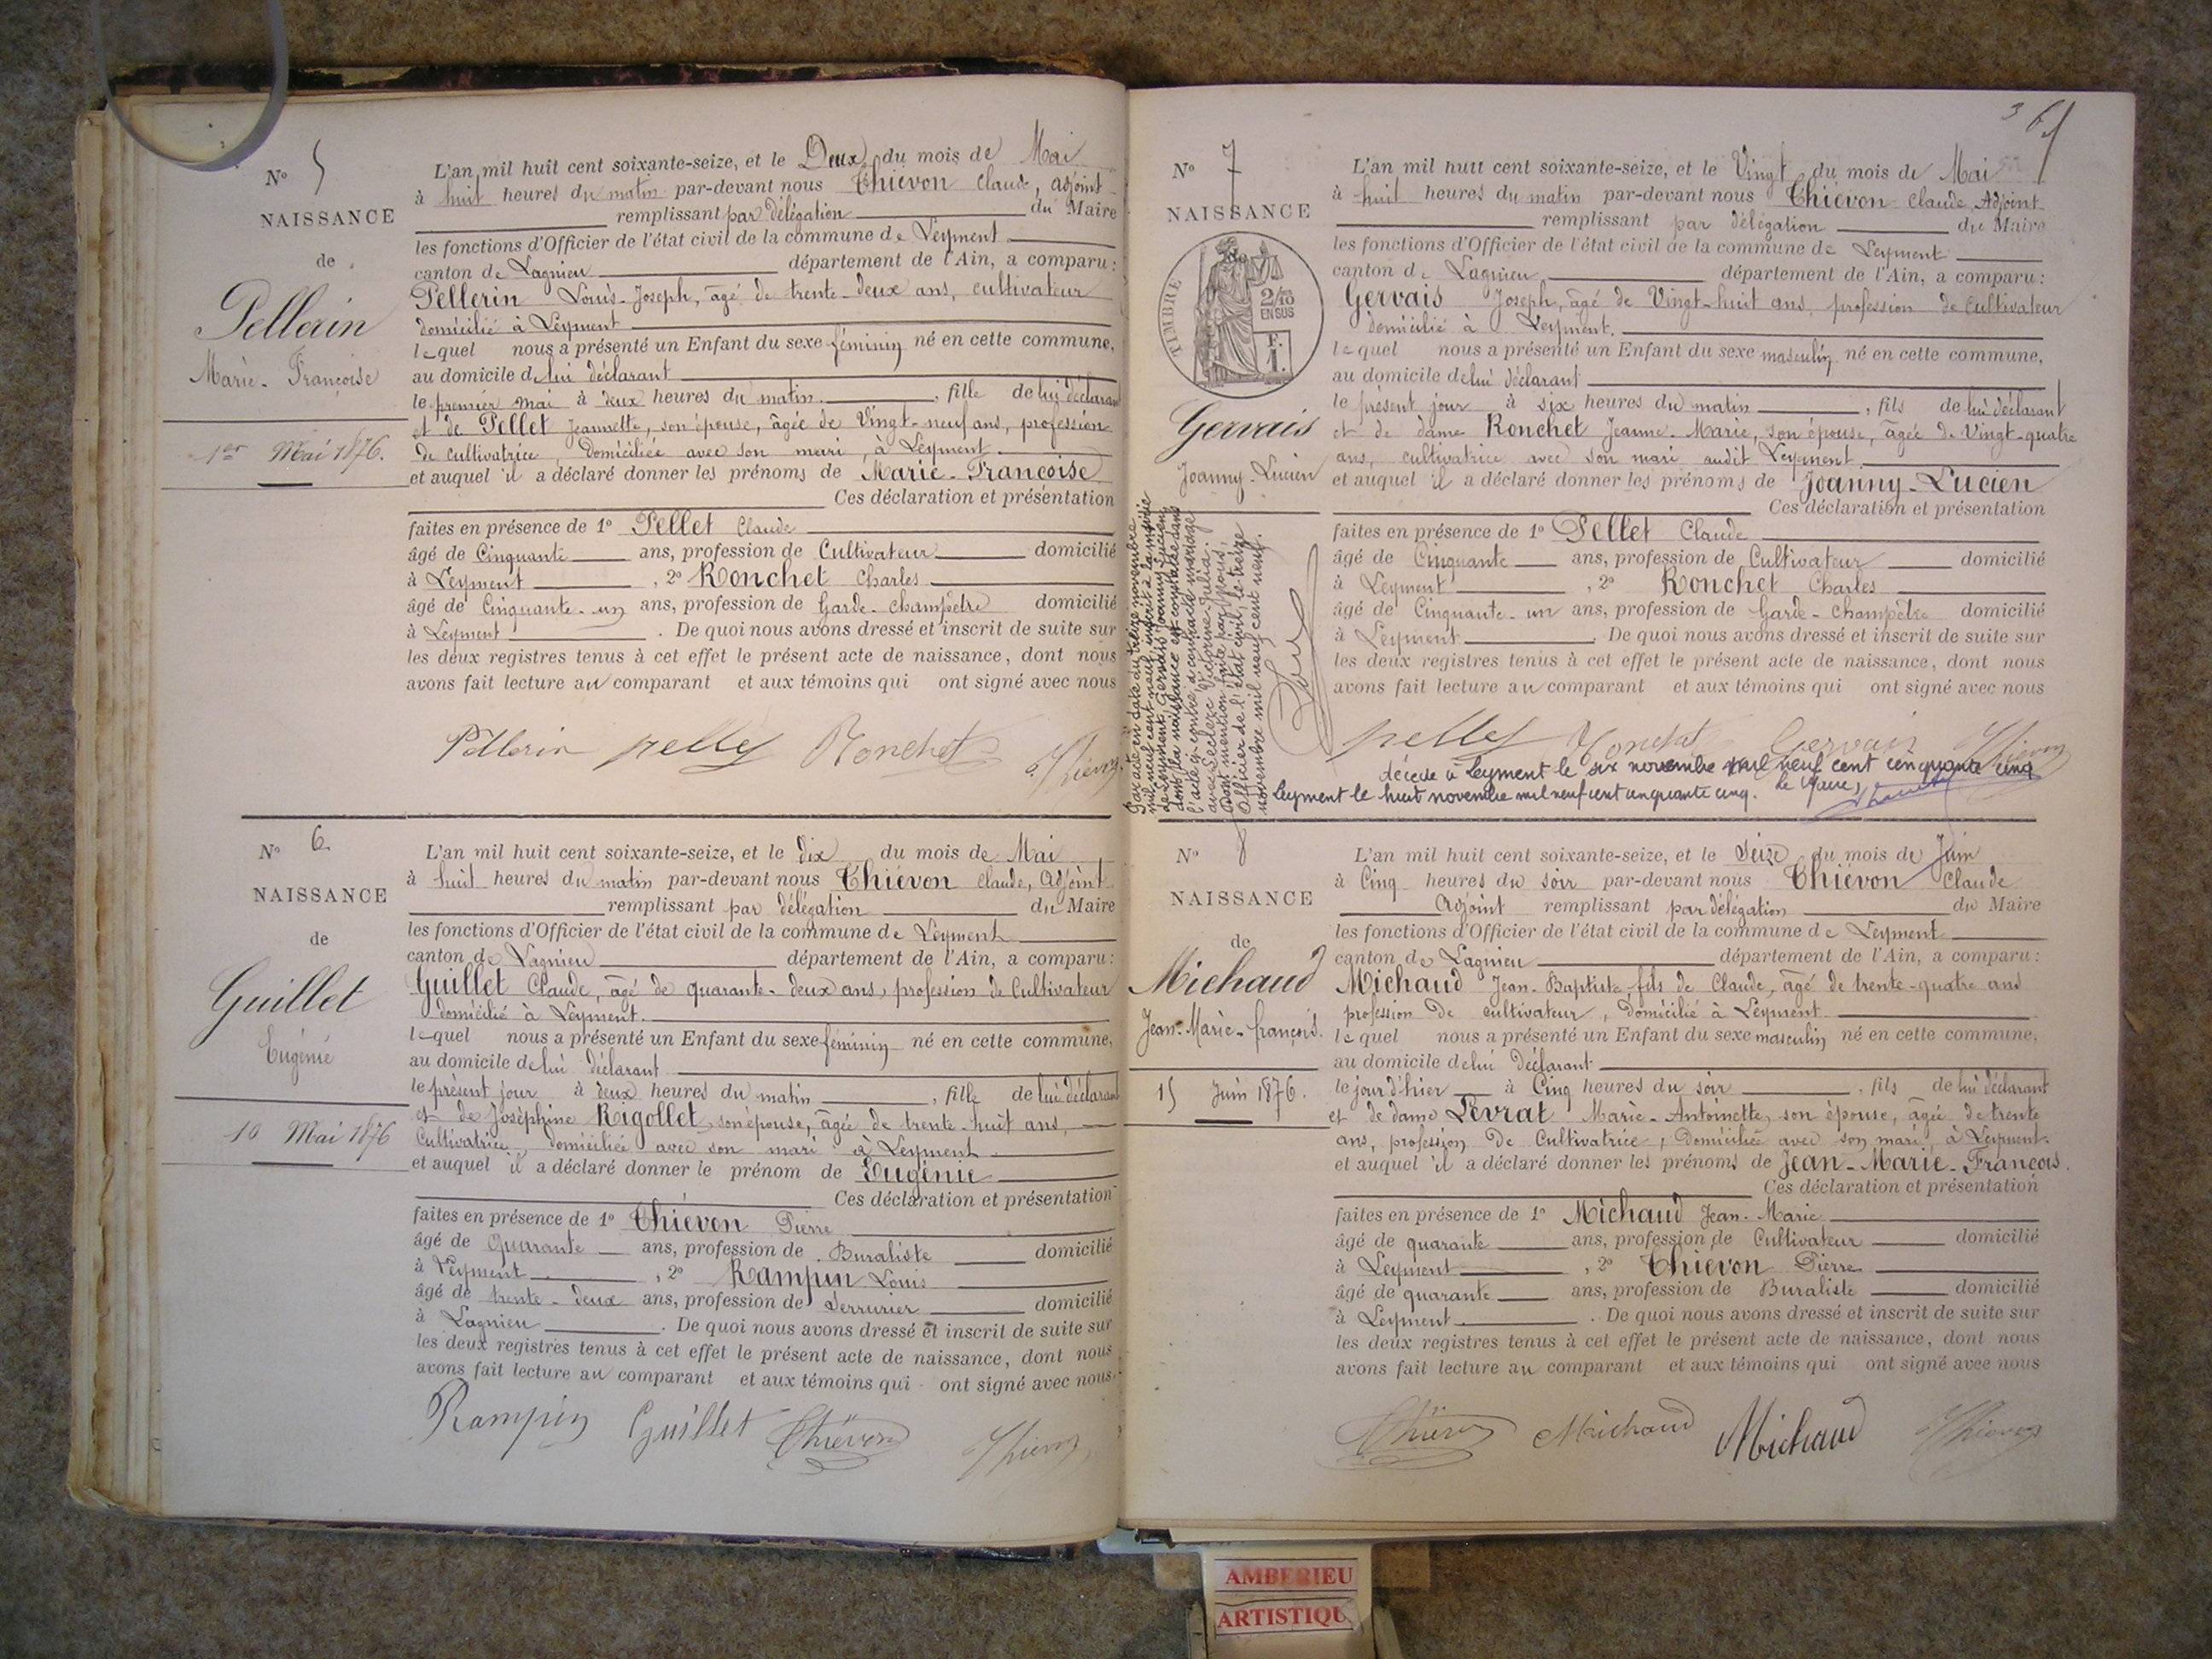 N° 5
NAISSANCE
de
Pellerin
Marie-Françoise
1er Mai 1876.
L'an mil huit cent soixante-seize, et le Deux du mois de Mai
à huit heures du matin par-devant nous Thiévon Claude, adjoint
remplissant par délégation du Maire
les fonctions d'Officier de l'état civil de la commune de Leyment
canton de Lagnieu département de l'Ain, a comparu :
Pellerin Louis-Joseph, âgé de trente-deux ans, cultivateur
domicilié à Leyment
lequel nous a présenté un Enfant du sexe féminin né en cette commune,
au domicile de lui déclarant
le premier mai à deux heures du matin , fille de lui déclarant
et de Pellet Jeannette, son épouse, âgée de Vingt-neuf ans, profession
de cultivatrice, Domiciliée avec son mari, à Leyment
et auquel il a déclaré donner les prénoms de Marie-Françoise
Ces déclaration et présentation
faites en présence de 1° Pellet Claude
âgé de Cinquante ans, profession de Cultivateur domicilié
à Leyment , 2° Ronchet Charles
âgé de Cinquante-un ans, profession de Garde-champêtre domicilié
à Leyment . De quoi nous avons dressé et inscrit de suite sur
les deux registres tenus à cet effet le présent acte de naissance, dont nous
avons fait lecture au comparant et aux témoins qui ont signé avec nous
Pellerin Pellet Ronchet Thiévon
N° 6
NAISSANCE
de
Guillet
Eugénie
10 Mai 1876
L'an mil huit cent soixante-seize, et le dix du mois de Mai
à huit heures du matin par-devant nous Thiévon Claude, Adjoint
remplissant par délégation du Maire
les fonctions d'Officier de l'état civil de la commune de Leyment
canton de Lagnieu département de l'Ain, a comparu :
Guillet Claude, âgé de quarante-deux ans, profession de Cultivateur
domicilié à Leyment.
lequel nous a présenté un Enfant du sexe féminin né en cette commune,
au domicile de lui déclarant
le présent jour à deux heures du matin , fille de lui déclarant
et de Joséphine Rigollet, son épouse, âgée de trente-huit ans,
Cultivatrice, domiciliée avec son mari à Leyment
et auquel il a déclaré donner le prénom de Eugénie
Ces déclaration et présentation
faites en présence de 1° Thiévon Pierre
âgé de Quarante ans, profession de Buraliste domicilié
à Leyment , 2° Rampin Louis
âgé de trente-deux ans, profession de Serrurier domicilié
à Lagnieu . De quoi nous avons dressé et inscrit de suite sur
les deux registres tenus à cet effet le présent acte de naissance, dont nous
avons fait lecture au comparant et aux témoins qui ont signé avec nous.
Rampin Guillet Thiévon Thiévon
N° 7
NAISSANCE
TIMBRE
2/10
EN SUS
F.
1.
Gervais
Joanny-Lucien
Par acte en date du treize novembre
mil neuf cent neuf, inscrit à la mairie
de Leyment, Gervais Joanny Lucien,
dont la naissance est constatée dans
l'acte ci-contre a contracté mariage
avec Leclerc Victorine Julia.
Dont mention faite par nous,
Officier de l'état civil, le treize
novembre mil neuf cent neuf.
L'an mil huit cent soixante-seize, et le Vingt du mois de Mai
à huit heures du matin par-devant nous Thiévon Claude, Adjoint
remplissant par délégation du Maire
les fonctions d'Officier de l'état civil de la commune de Leyment
canton de Lagnieu département de l'Ain, a comparu :
Gervais Joseph, âgé de Vingt-huit ans, profession de Cultivateur
domicilié à Leyment.
lequel nous a présenté un Enfant du sexe masculin né en cette commune,
au domicile de lui déclarant
le présent jour à six heures du matin , fils de lui déclarant
et de dame Ronchet Jeanne-Marie, son épouse, âgée de Vingt-quatre
ans, cultivatrice avec son mari audit Leyment
et auquel il a déclaré donner les prénoms de Joanny-Lucien
Ces déclaration et présentation
faites en présence de 1° Pellet Claude
âgé de Cinquante ans, profession de Cultivateur domicilié
à Leyment , 2° Ronchet Charles
âgé de Cinquante-un ans, profession de Garde-champêtre domicilié
à Leyment . De quoi nous avons dressé et inscrit de suite sur
les deux registres tenus à cet effet le présent acte de naissance, dont nous
avons fait lecture au comparant et aux témoins qui ont signé avec nous
Pellet Ronchet Gervais Thiévon
décédé à Leyment le six novembre mil neuf cent cinquante cinq
Leyment le huit novembre mil neuf cent cinquante cinq. Le Maire,
N° 8
NAISSANCE
de
Michaud
Jean-Marie-françois.
15 Juin 1876.
L'an mil huit cent soixante-seize, et le Seize du mois de Juin
à Cinq heures du soir par-devant nous Thiévon Claude
Adjoint remplissant par délégation du Maire
les fonctions d'Officier de l'état civil de la commune de Leyment
canton de Lagnieu département de l'Ain, a comparu :
Michaud Jean-Baptiste, fils de Claude, âgé de trente-quatre ans
profession de cultivateur, Domicilié à Leyment
lequel nous a présenté un Enfant du sexe masculin né en cette commune,
au domicile de lui Déclarant
le jour d'hier à Cinq heures du soir , fils de lui déclarant
et de dame Levrat Marie-Antoinette, son épouse, âgée de trente
ans, profession de Cultivatrice, Domiciliée avec son mari, à Leyment.
et auquel il a déclaré donner les prénoms de Jean-Marie-François.
Ces déclaration et présentation
faites en présence de 1° Michaud Jean-Marie
âgé de quarante ans, profession de Cultivateur domicilié
à Leyment , 2° Thiévon Pierre
âgé de quarante ans, profession de Buraliste domicilié
à Leyment . De quoi nous avons dressé et inscrit de suite sur
les deux registres tenus à cet effet le présent acte de naissance, dont nous
avons fait lecture au comparant et aux témoins qui ont signé avec nous
Thiévon Michaud Michaud Thiévon
AMBERIEU
ARTISTIQU